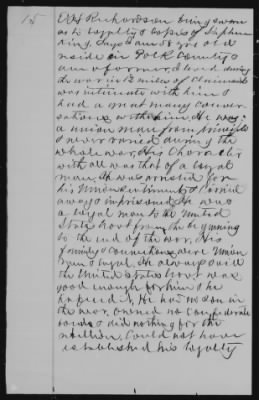 15
Richardson being sworn
as to loyalty & copies of Stephen
King. Says I am 58 yrs old
reside in Polk County &
am a farmer. I lived during
the war in 12 miles of claimant
was intimate with him &
had a great many conver-
sations with him. He was
a union man from principle
& never varied during the
whole war. His Character
with all was that of a loyal
man. He was arrested for
his Union sentiments & carried
away & imprisoned. He was
a loyal man to the United
States Govt from the beginning
to the end of the war. His
family & connections were Union
men & loyal. He always said
the United States Govt was
good enough for him & he
hoped it. He had no son in
the war, owned no Confederate
bonds & did nothing for the
rebellion. Could not have
established his loyalty